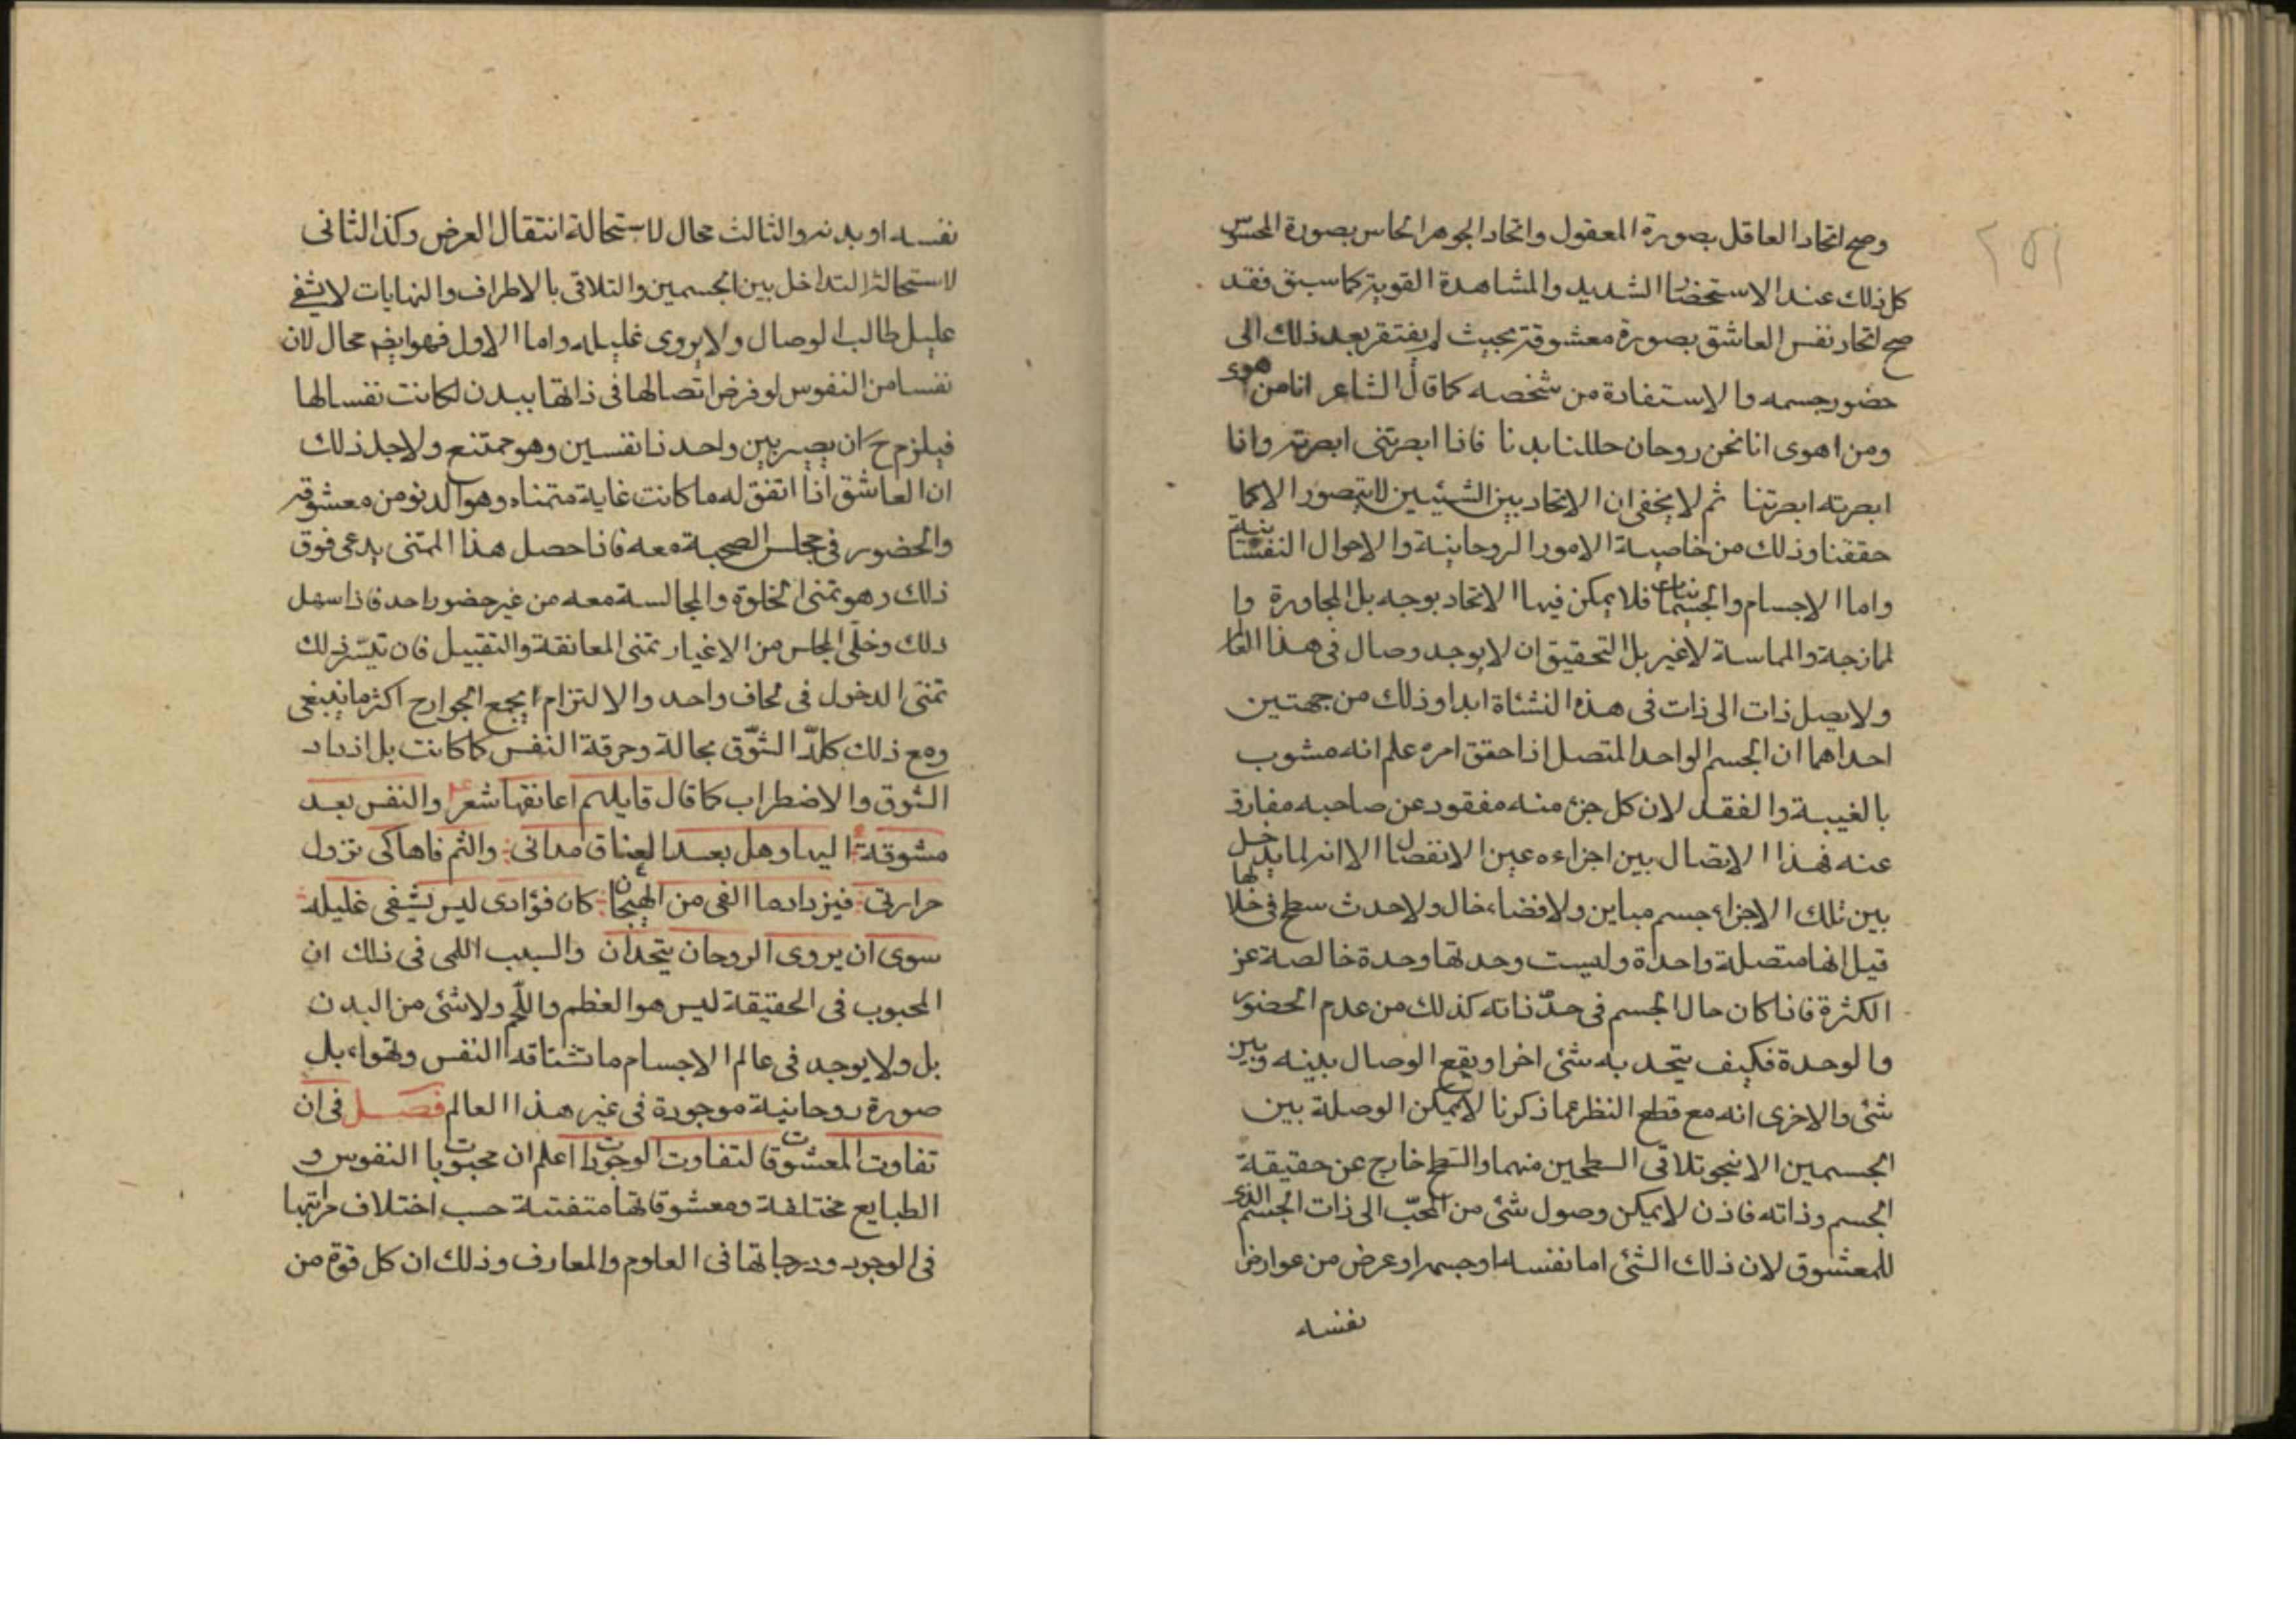 وصح اتحاد العاقل بصورة المعقول واتحاد الجوهر الحاس بصورة المحسوس
كل ذلك عند الاستحضار الشديد والمشاهدة القوية كما سبق فقد
صح اتحاد نفس العاشق بصورة معشوقة بحيث لم يفتقر بعد ذلك الى
حضور جسمه والاستفادة من شخصه كما قال الشاعر انا من اهوى
ومن اهوى انا نحن روحان حللنا بدنا فاذا ابصرتنى ابصرته واذا
ابصرته ابصرتنا ثم لا يخفى ان الاتحاد بين الشيئين لا يتصور الا كما
حققنا وذلك من خاصية الامور الروحانية والاحوال النفسانية
واما الاجسام والجسمانيات فلا يمكن فيها الاتحاد بوجه بل المجاورة وا
لمازجة والمماسة لا غير بل التحقيق ان لا يوجد وصال فى هذا العالم
ولا يصل ذات الى ذات فى هذه النشئاة ابدا وذلك من جهتين
احداهما ان الجسم الواحد المتصل اذا حقق امره علم انه مشوب
بالغيبة والفقد لان كل جزء منه مفقود عن صاحبه مفارق
عنه فهذا الاتصال بين اجزاءه عين الانفصال الا انه لما يدخل
بين تلك الاجزاء جسم مباين ولا فضاء خال ولا حدث سطح فى خلالها
قيل انها متصلة واحدة وليست وحدتها وحدة خالصة عن
الكثرة فاذا كان حال الجسم فى حدّ ذاته كذلك من عدم الحضور
والوحدة فكيف يتحد به شئ اخر او يقع الوصال بينه وبين
شئ والاخرى انه مع قطع النظر عما ذكرنا لا يمكن الوصلة بين
الجسمين الا بنحو تلاقى السطحين منهما والسطح خارج عن حقيقة
الجسم وذاته فاذن لا يمكن وصول شئ من المحبّ الى ذات الجسم الذى
للمعشوق لان ذلك الشئ اما نفسه او جسمه او عرض من عوارض
نفسه
نفسه او بدنه والثالث محال لاستحالة انتقال العرض وكذا الثانى
لاستحالة التداخل بين الجسمين والتلاقى بالاطراف والنهايات لا يشفى
عليل طالب الوصال ولا يروى غليله واما الاول فهو ايضم محال لان
نفسا من النفوس لو فرض اتصالها فى ذاتها ببدن لكانت نفسا لها
فيلزم ح ان يصير بين واحد ذا نفسين وهو ممتنع ولاجل ذلك
ان العاشق اذا اتفق له ما كانت غاية متمناه وهو الدنو من معشوقه
والحضور فى مجلس الصحبة معه فاذا حصل هذا المتنى يدعى فوق
ذلك وهو تمنى الخلوة والمجالسة معه من غير حضور احد فاذا سهل
ذلك وخلّى المجلس من الاغيار تمنى المعانقة والتقبيل فان تيسّر ذلك
تمنى الدخول فى لحاف واحد والالتزام بجمع الجوارح اكثر ما ينبغى
ومع ذلك كلّه الشوّق بحالة وحرقة النفس كما كانت بل ازداد
الشوق والاضطراب كما قال قايلهم اعانقها شعر والنفس بعد
مشوقة اليها وهل بعد العناق مدانى والثم فاها كى تزول
حرارتى فيزداد ما القى من الهيجان كان فؤادى ليس يشفى غليله
سوى ان يروى الروحان يتحدان والسبب اللمى فى ذلك ان
المحبوب فى الحقيقة ليس هو العظم واللّحم ولا شئ من البدن
بل ولا يوجد فى عالم الاجسام ما تشتاقه النفس وتهواء بل
صورة روحانية موجودة فى غير هذا العالم فصل فى ان
تفاوت المعشوقات لتفاوت الوجودات اعلم ان محبوبات النفوس و
الطبايع مختلفة ومعشوقاتها متفتنة حسب اختلاف مراتبها
فى الوجود ودرجاتها فى العلوم والمعارف وذلك ان كل قوة من